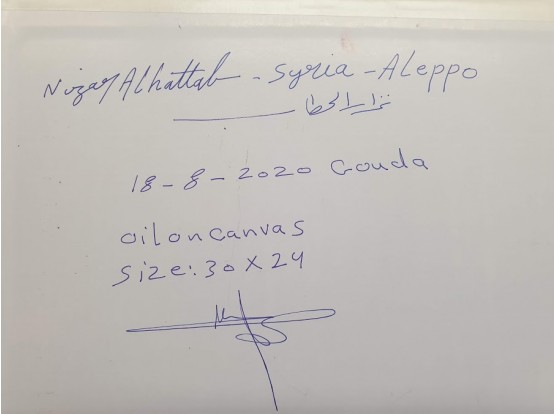 Nizar Alhattab - Syria - Aleppo
نزار الحطاب
18-8-2020 Gouda
oil on canvas
Size: 30 X 24